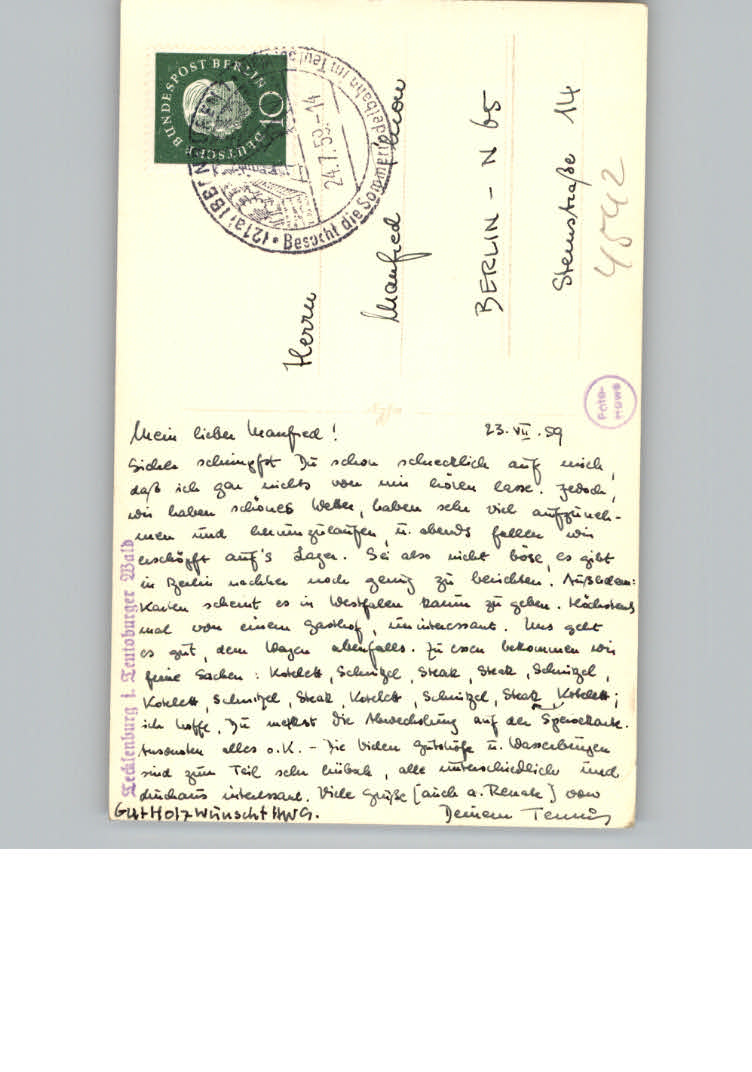 DEUTSCHE BUNDESPOST BERLIN
10
24.7.59.-14
(21a) IBBEN
Besucht die Sommerrodelbahn im Teuto
Herrn
Manfred
BERLIN - N 65
Steinstraße 14
4592
Foto-
Mein lieber Manfred! 23. VII. 59
Sicher schimpfst Du schon schrecklich auf mich,
daß ich gar nichts von mir hören lasse. Jedoch,
wir haben schönes Wetter, haben sehr viel aufzuneh-
men und herumzulaufen, u. abends fallen wir
erschöpft auf's Lager. Sei also nicht böse, es gibt
in Berlin nachher noch genug zu berichten. Außerdem:
Karten scheint es in Westfalen kaum zu geben. Höchstens
mal von einem Gasthof, uninteressant. Uns geht
es gut, dem Wagen ebenfalls. Zu essen bekommen wir
feine Sachen: Kotelett, Schnitzel, Steak, Steak, Schnitzel,
Kotelett, Schnitzel, Steak, Kotelett, Schnitzel, Steak, Kotelett;
ich hoffe, Du merkst die Abwechslung auf der Speisekarte.
Ansonsten alles o.K. - Die vielen Gutshöfe u. Wasserburgen
sind zum Teil sehr hübsch, alle unterschiedlich und
durchaus interessant. Viele Grüße [auch a. Renate] von
Deinem
Gut Holz wünscht HWG.
Tecklenburg i. Teutoburger Wald